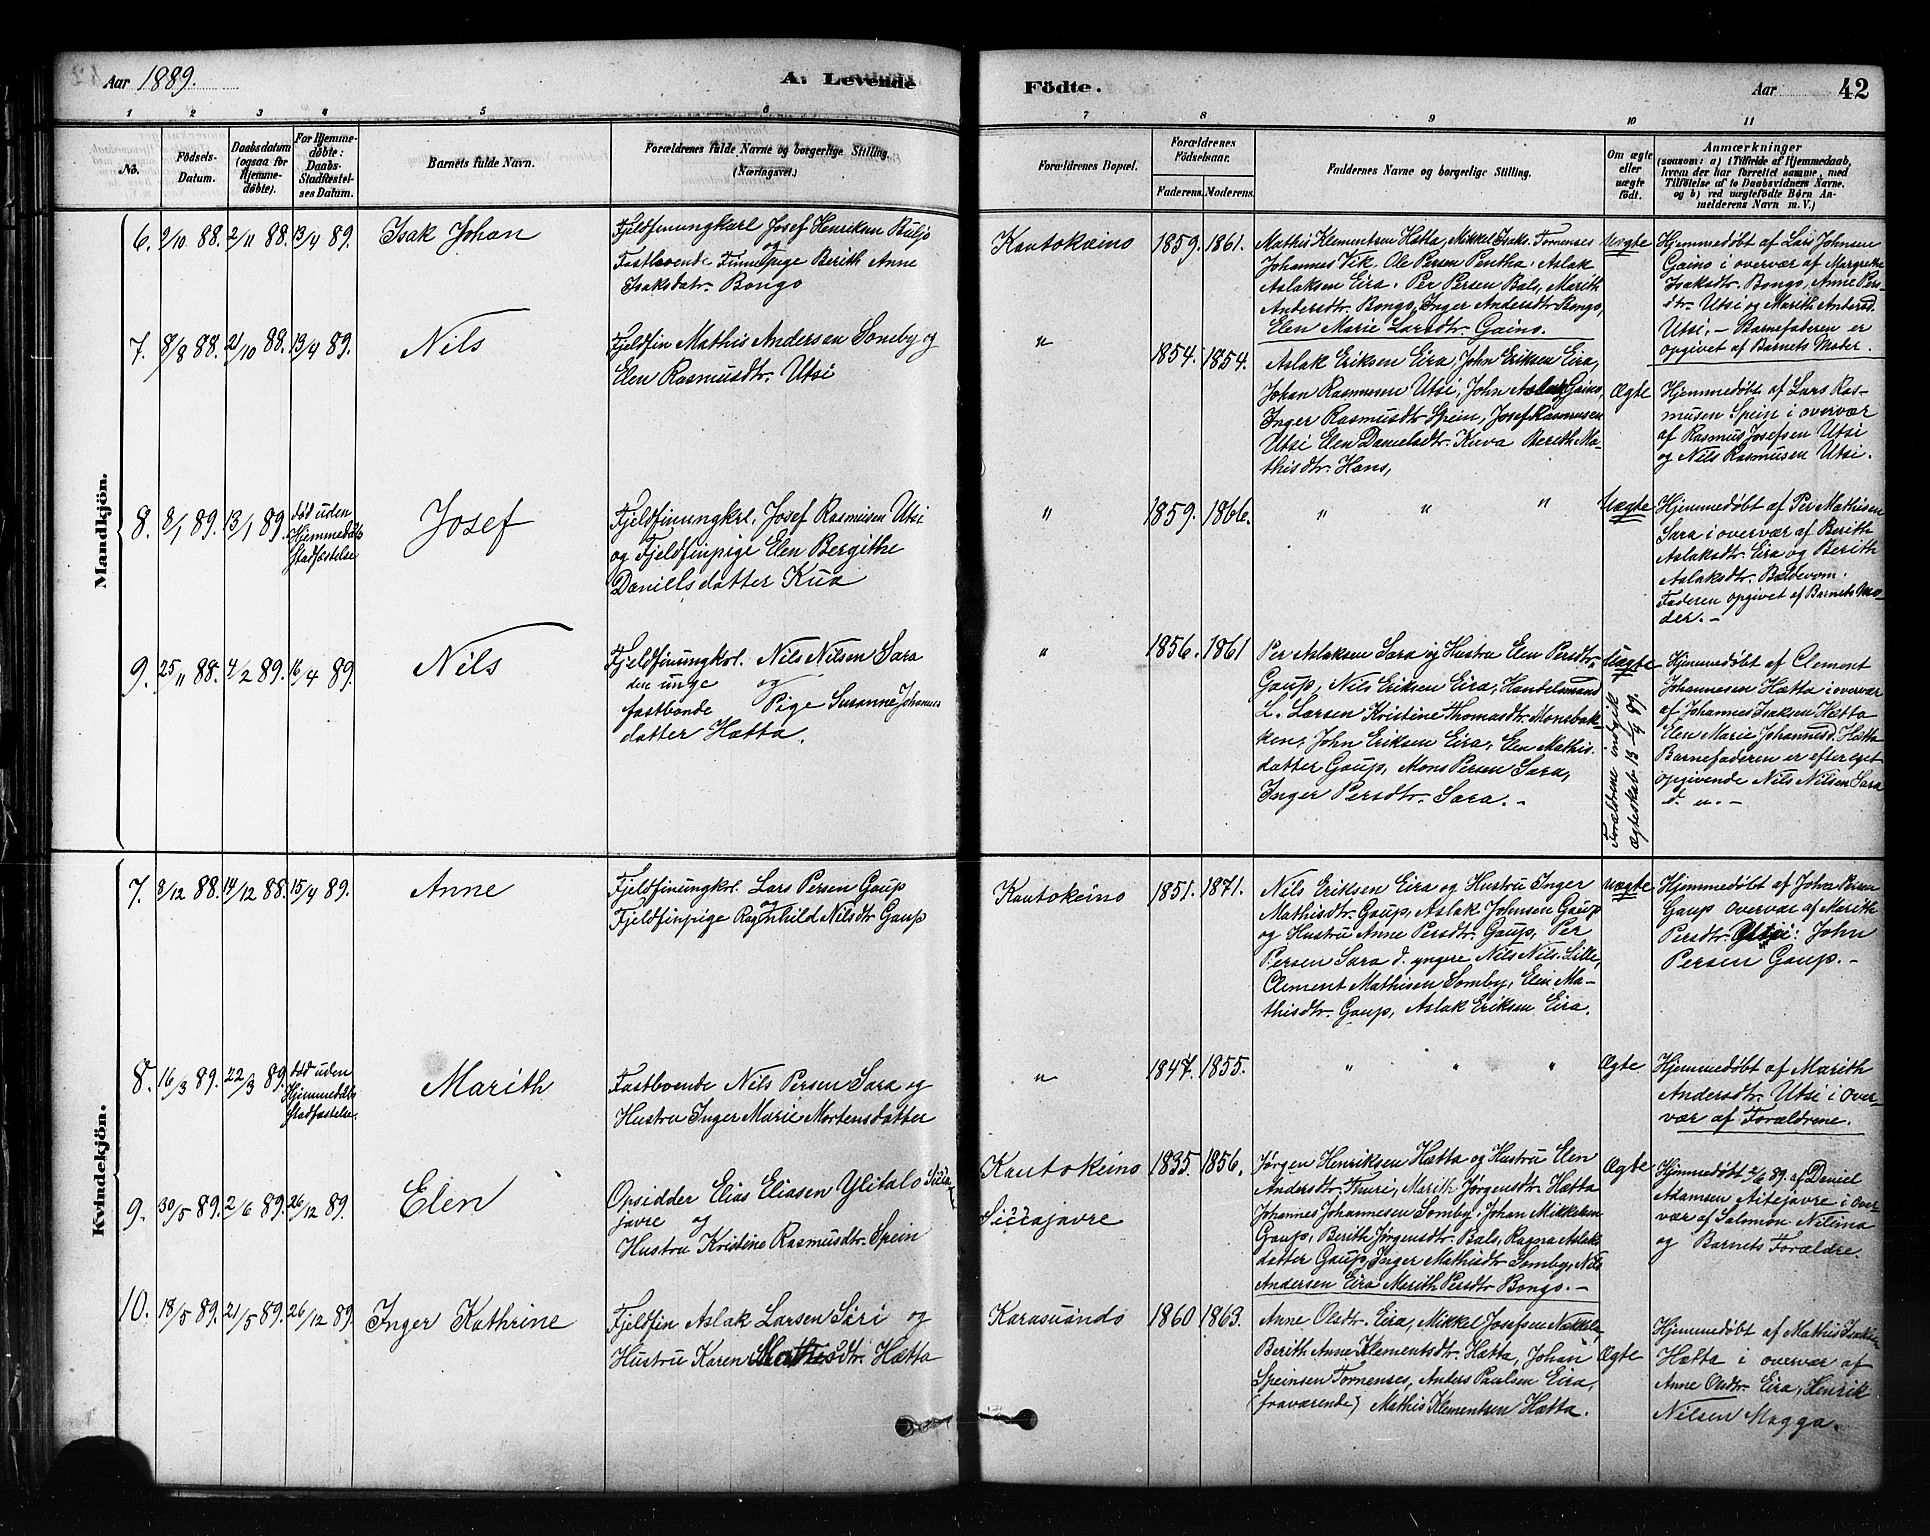 Aar 1889.
A. Levende
Födte.
Aar
42
1 2 3 4 5 6 7 8 9 10 11
No.
Födsels-
Datum.
Daabsdatum
(ogsaa for
Hjemme-
döbte).
For Hjemme-
döbte:
Daabs-
Stadfæstel-
ses Datum.
Barnets fulde Navn.
Forældrenes fulde Navne og borgerlige Stilling.
(Næringsvei.)
Forældrenes Bopæl.
Forældrenes
Födselsaar.
Faderens. Moderens.
Faddernes Navne og borgerlige Stilling.
Om ægte
eller
uægte
födt.
Anmærkninger
(saasom: a) i Tilfælde af Hjemmedaab,
hvem der har forrettet samme, med
Tilföielse af to Daabsvidners Navne,
og b) ved uægtefödte Börn An-
melderens Navn m. V.)
Mandkjön.
6. 9/10 88. 2/11 88. 13/4 89. Isak Johan
Fjeldfinungkarl Josef Henriksen Buljo
og
Fastboende Finnepige Berith Anne
Isaksdatr. Bongo
Kautokeino 1859. 1861.
Mathis Klementsen Hætta, Mikkel Isaks. Tornenses
Johannes Vik. Ole Persen Pentha. Aslak
Aslaksen Eira. Per Persen Bals, Marith
Andersdt. Bongo, Inger Andersdtr. Bongo,
Elen Marie Larsdtr. Gaino.
Uægte
Hjemmedøbt af Lars Johnsen
Gaino i overvær af Margrethe
Isaksdtr. Bongo, Anne Pers-
dtr. Utsi og Marith Andersd.
Utsi, - Barnefaderen er
opgivet af Barnets Moder.
7. 8/8 88. 21/10 88. 13/4 89. Nils
Fjeldfin Mathis Andersen Somby og
Elen Rasmusdtr. Utsi
" 1854. 1854.
Aslak Eriksen Eira, John Eriksen Eira,
Johan Rasmusen Utsi, John Aslaks Gaino,
Inger Rasmusdtr Spein, Josef Rasmusen
Utsi Elen Danielsdtr. Kuva Berith Ma-
thisdtr. Hans,
Ægte
Hjemmedøbt af Lars Ras-
musen Spein i overvær
af Rasmus Josefsen Utsi
og Nils Rasmusen Utsi.
8. 8/1 89. 13/1 89. død uden
Hjemmedåb
Stadfæstelse
Josef
Fjeldfinungkrl. Josef Rasmusen Utsi
og Fjeldfinpige Elen Bergithe
Daniellsdatter Kua
" 1859. 1866. " " "
Uægte
Hjemmedøbt af Per Mathisen
Sara i overvær af Berith
Aslaksdtr. Eira og Berith
Aslaksdtr. Baldevom.
Faderen opgivet af Barnets Mo-
der. -
9. 25/11 88. 4/2 89. 16/4 89. Nils
Fjeldfinungkrl. Nils Nilsen Sara
den unge og
fastboende Pige Susanne Johannes
datter Hætta.
" 1856. 1861
Per Aslaksen Sara og Hustru Elen Persdtr.
Gaup, Nils Eriksen Eira, Handelsmand
L. Larsen Kristine Thomasdtr. Monsbak-
ken, John Eriksen Eira, Elen Mathis.
datter Gaup, Mons Persen Sara,
Inger Persdtr. Sara. -
Uægte
Forældrene indgik
Ægteskab 13/4 89.
Hjemmedøbt af Clement
Johannesen Hætta i overvær
af Johannes Isaksen Hætta
Elen Marie Johannesd. Hætta
Barnefaderen er efter eget
opgivende Nils Nilsen Sara
d. u. -
Kvindekjön.
7. 8/12 88. 14/12 88. 15/4 89. Anne
Fjeldfinungkrl. Lars Persen Gaup
og
Fjeldfinpige Ragnhild Nilsdtr Gaup
Kautokeino 1851. 1871.
Nils Eriksen Eira og Hustru Inger
Mathisdtr. Gaup, Aslak Johnsen Gaup
og Hustru Anne Persdtr. Gaup, Per
Persen Sara d. yngere Nils Nils. Lille,
Clement Mathisen Somby, Elen Ma-
thisdtr. Gaup, Aslak Eriksen Eira.
Uægte
Hjemmedøbt af John Persen
Gaup overvær af Marith
Persdtr. Utsi: John
Persen Gaup. -
8. 16/3 89. 22/3 89. død uden
Hjemmedåbs
Stadfæstelse.
Marith
Fastboende Nils Persen Sara og
Hustru Inger Marie Mortensdatter
" 1847. 1855. " " "
Ægte
Hjemmedøbt af Marith
Andersdtr. Utsi i over-
vær af Forældrene.
9. 30/5 89. 2/6 89. 26/12 89. Elen
Opsidder Elias Eliasen Ylitalo Sicca
javre og
Hustru Kristine Rasmusdtr. Spein
Kautokeino
Siccajavre
1835. 1856.
Jørgen Henriksen Hætta og Hustru Elen
Andersdtr. Thuri, Marith Jørgensdtr. Hætta
Johannes Johannesen Somby, Johan Mikkelsen
Gaup, Berith Jørgensdtr. Bals, Ragna Aslak
datter Gaup, Inger Mathisdtr Somby, Nils
Andersen Eira Marith Persdtr Bongo. -
Ægte
Hjemmedøbt 2/6 89. af Daniel
Adamsen Aitejavre i over
vær af Salomon Nilima
og Barnets Forældre.
10. 18/5 89. 21/5 89. 26/12 89. Inger Kathrine
Fjeldfin Aslak Larsen Siri og
Hustru Karen Mathisdtr. Hætta
Karasuando 1860 1863.
Anne Olsdtr. Eira, Mikkel Josefsen Nækkela
Berith Anne Klementsdtr. Hætta, Johan
Speinsen Tornenses, Anders Paulsen Eira,
(fraværende) Mathis Klementsen Hætta.
Ægte
Hjemmedøbt af Mathis Isaksen
Hætta i overvær af
Anne Olsdtr. Eira, Henrik
Nilsen Magga.